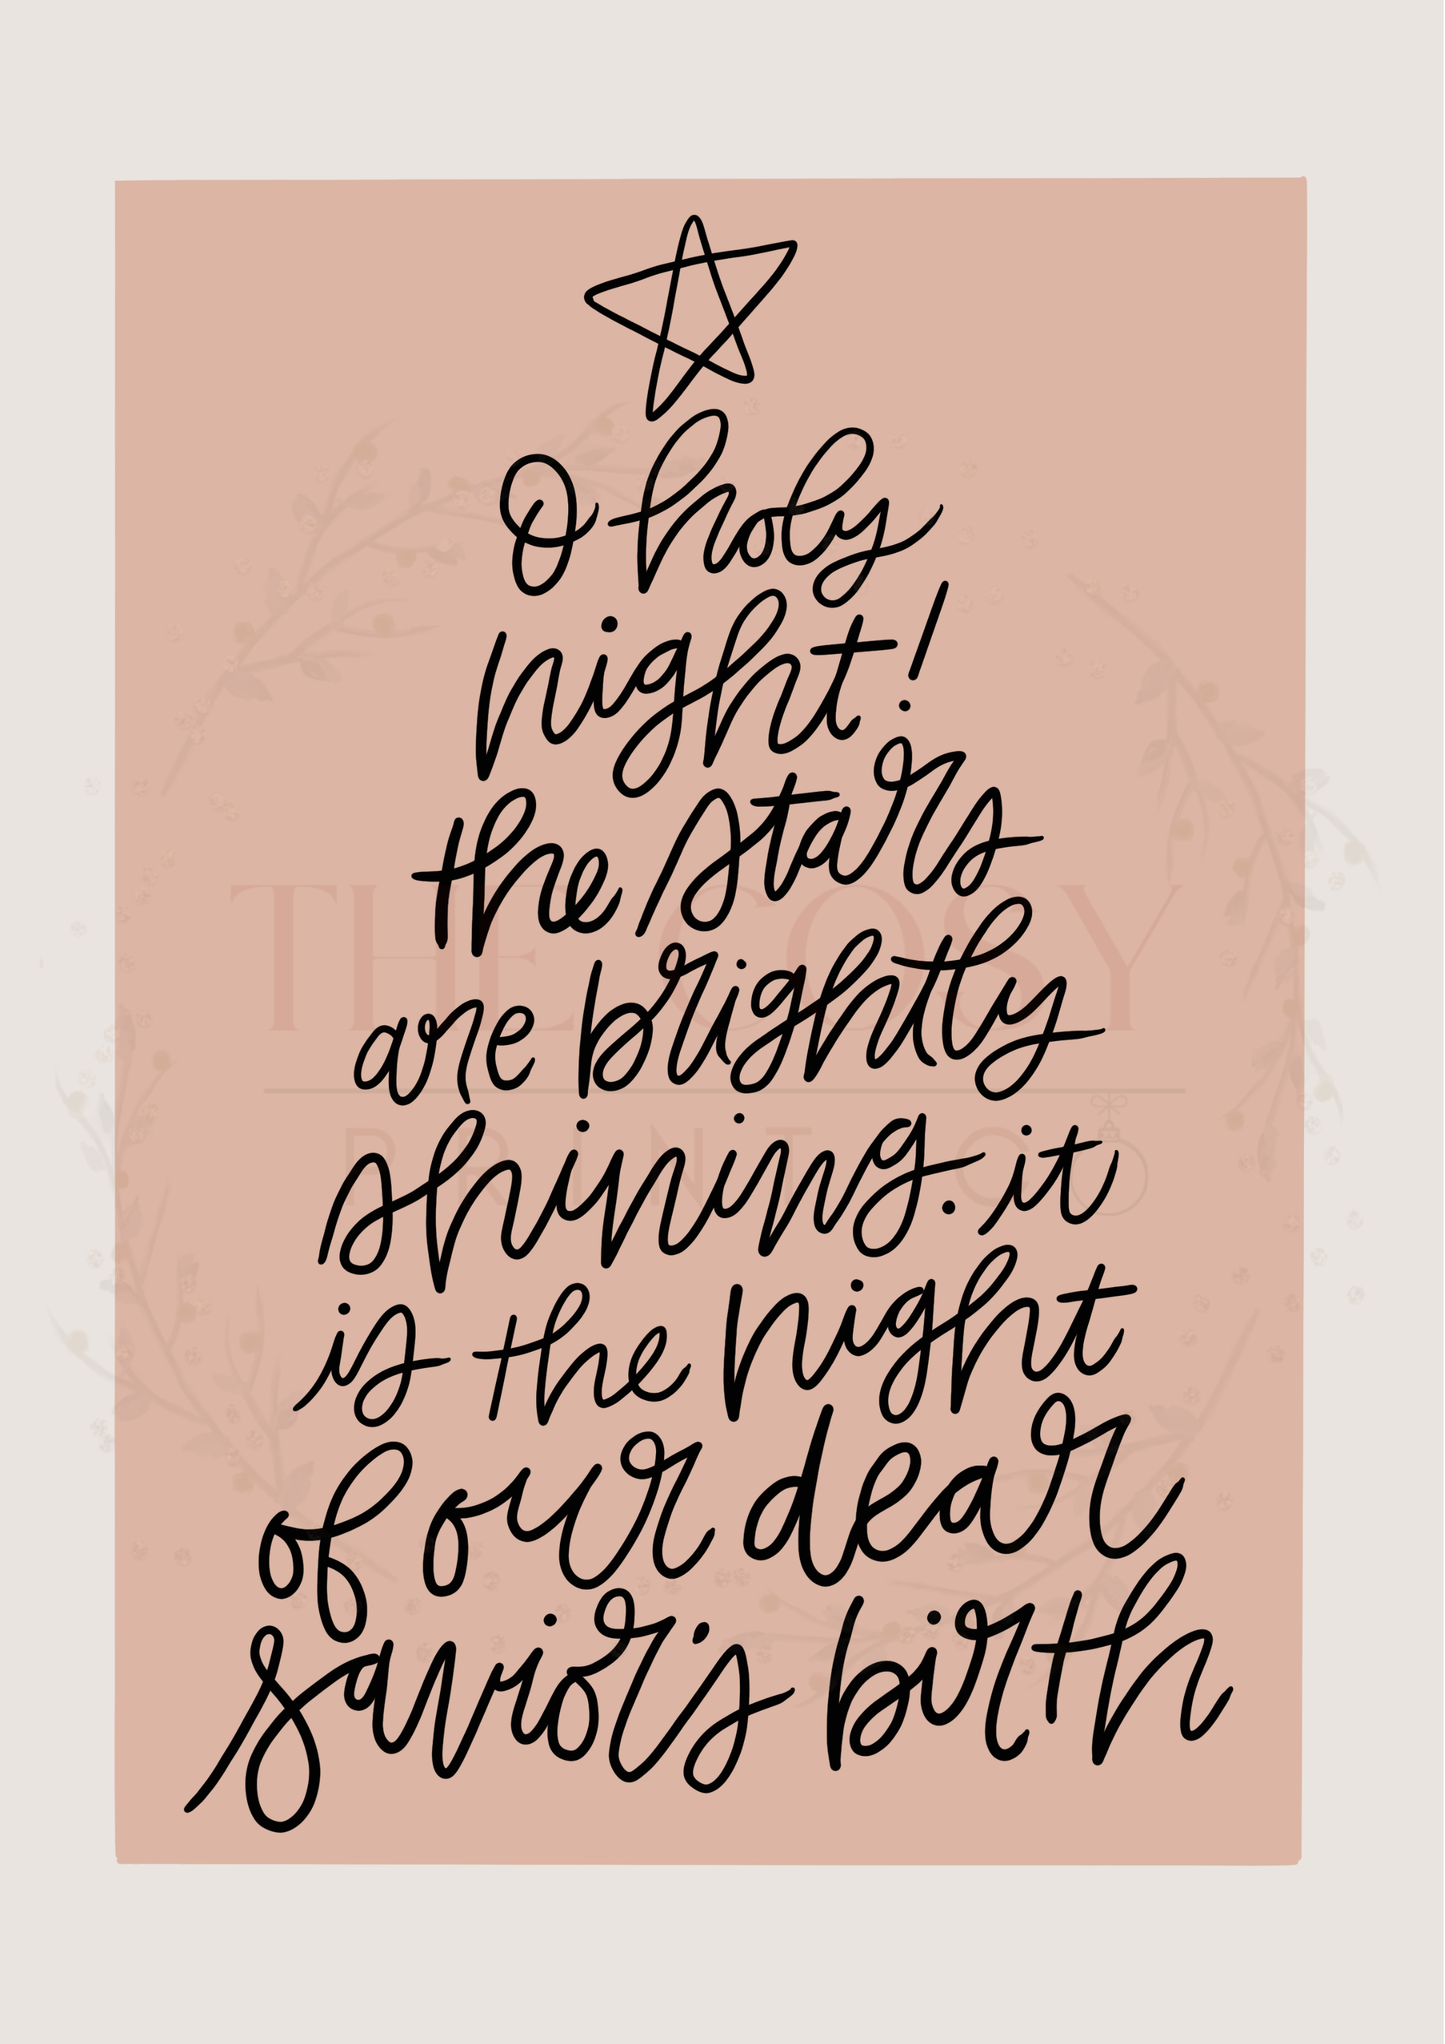 O holy
night!
the stars
are brightly
shining. it
is the night
of our dear
savior's birth
THE COSY
PRINT CO